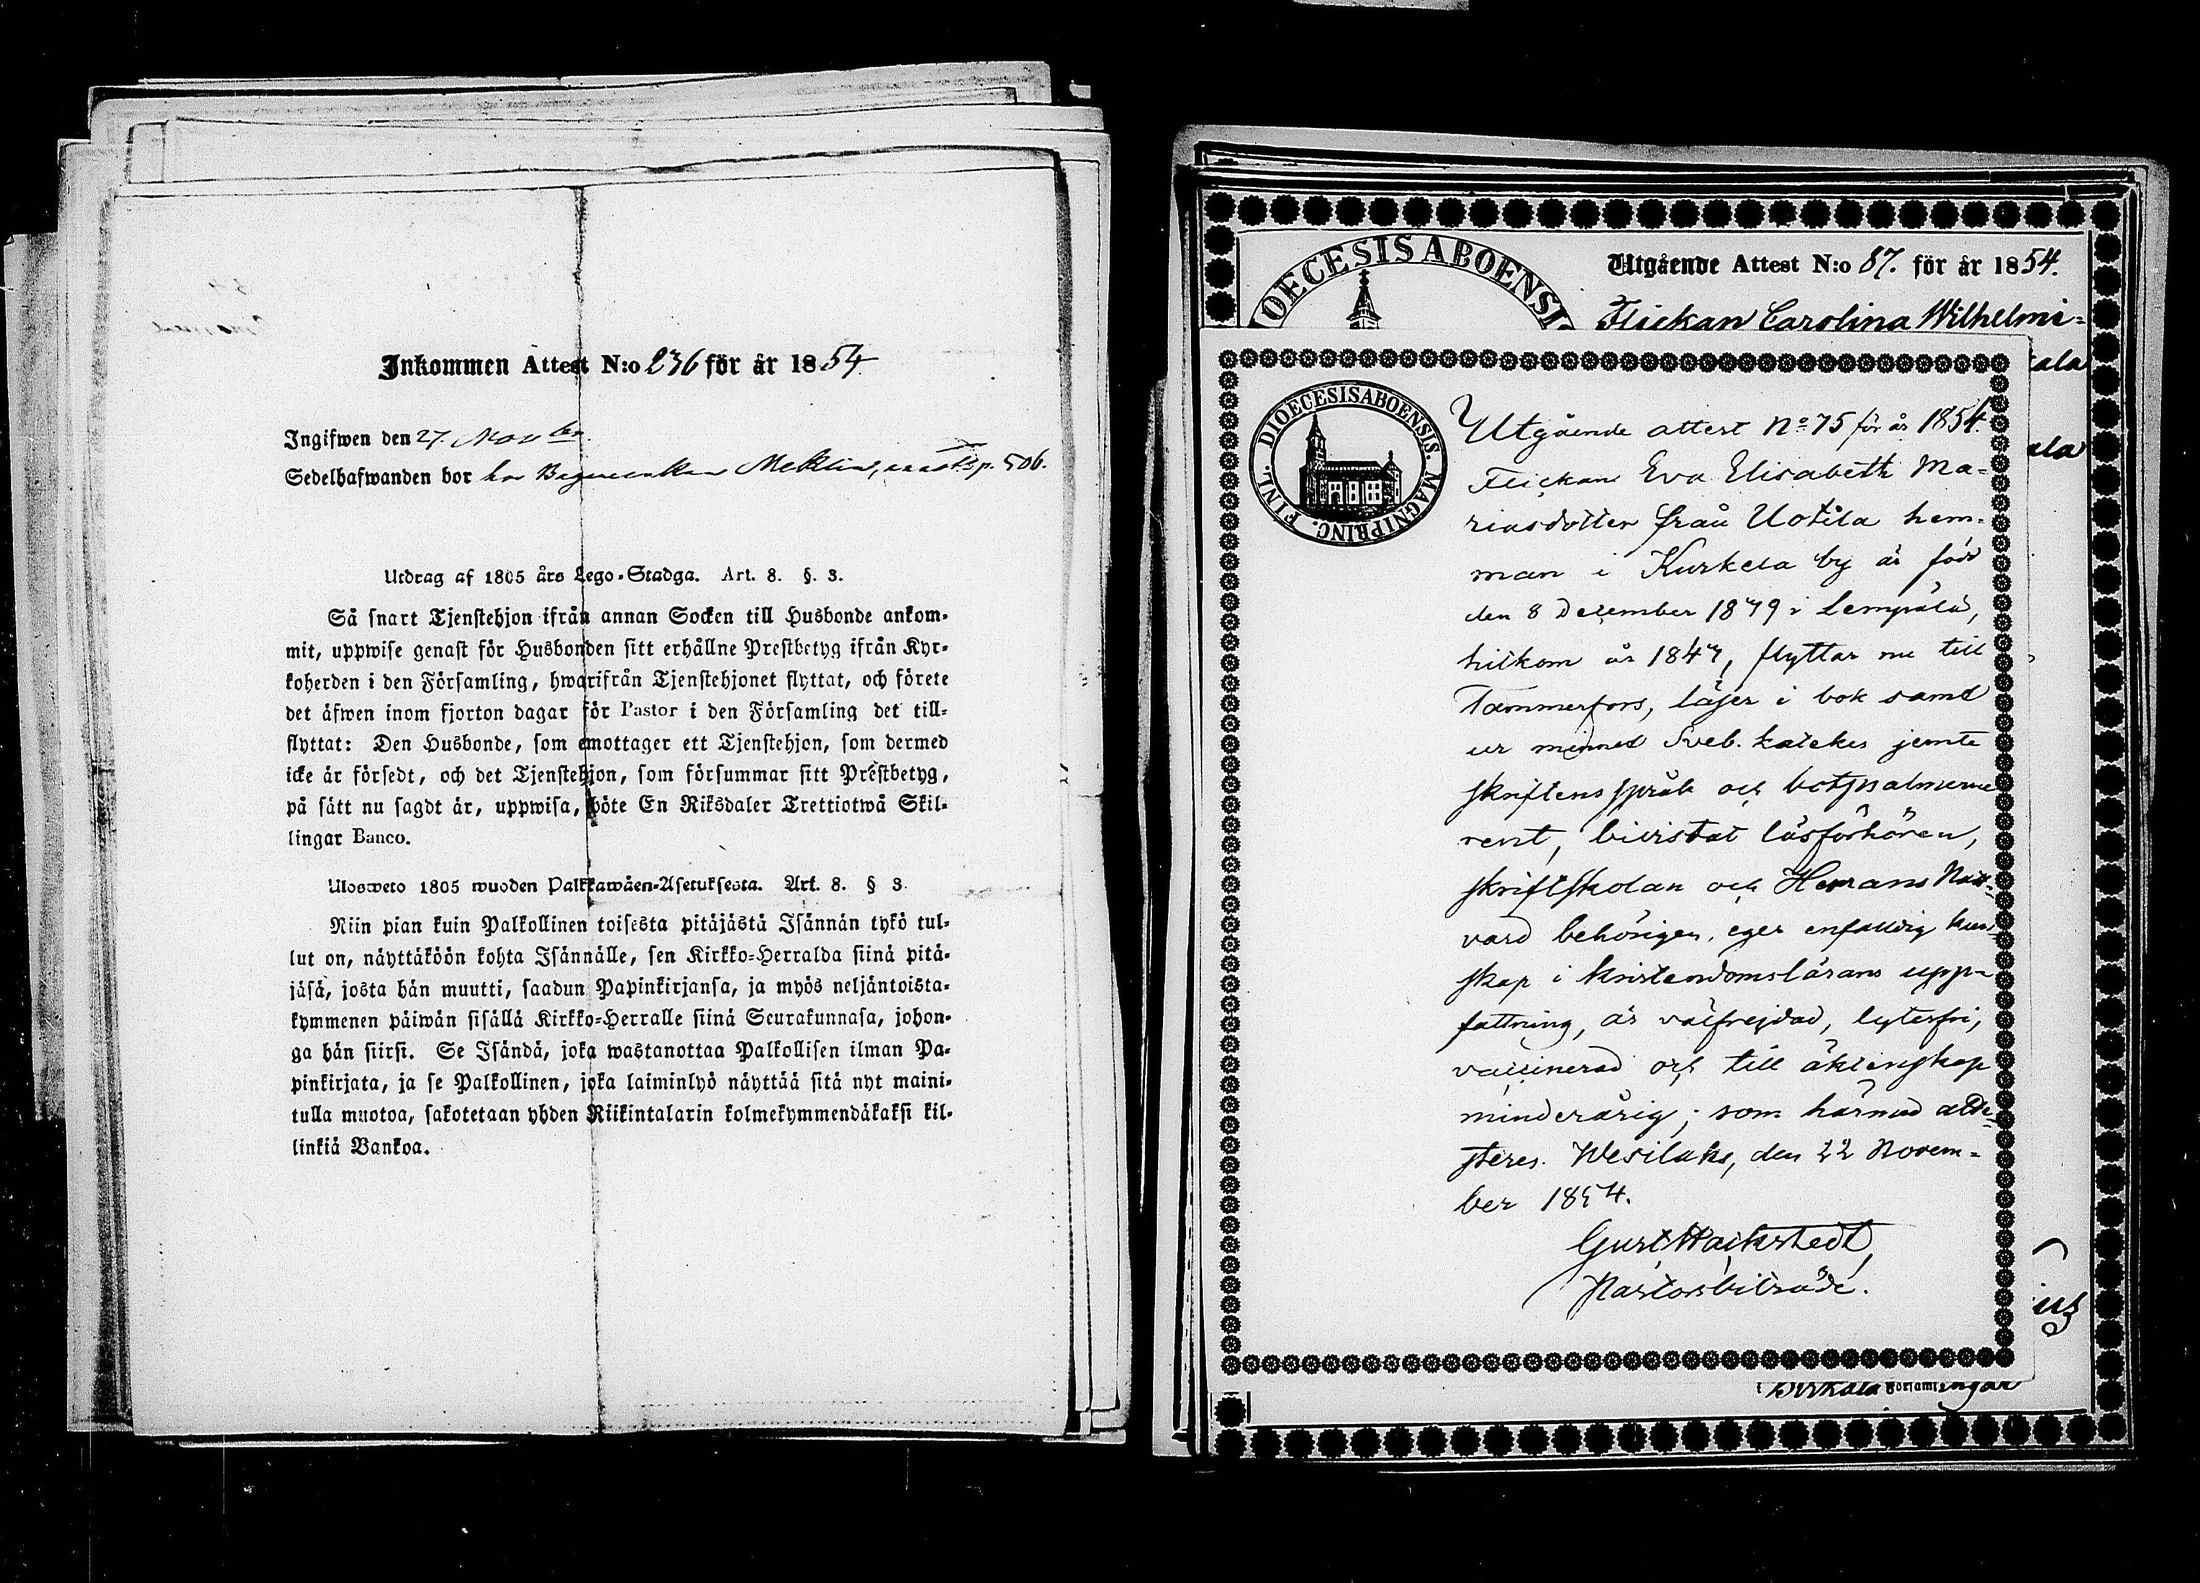 Inkommen Attest N:o 236 för år 1854.
Ingifwen den 27. Novber.
Sedelhafwanden bor hos p. 506.
Utdrag af 1805 års Lego-Stadga. Art. 8. §. 3.
Så snart Tjenstehjon ifrån annan Socken till Husbonde ankom-
mit, uppwise genast för Husbonden sitt erhållne Prestbetyg ifrån Kyr-
koherden i den Församling, hwarifrån Tjenstehjonet flyttat, och förete
det äfwen inom fjorton dagar för Pastor i den Församling det till-
flyttat: Den Husbonde, som emottager ett Tjenstehjon, som dermed
icke är försedt, och det Tjenstehjon, som försummar sitt Prestbetyg,
på sätt nu sagdt är, uppwisa, böte En Riksdaler Trettiotwå Skil-
lingar Banco.
Ulosweto 1805 wuoden Palkkawäen-Asetuksesta. Art. 8. § 3.
Niin pian kuin Palkollinen toisesta pitäjästä Isännän tykö tul-
lut on, näyttäköön kohta Isännälle, sen Kirkko-Herralda siinä pitä-
jäsä, josta hän muutti, saadun Papinkirjansa, ja myös neljäntoista-
kymmenen päiwän sisällä Kirkko-Herralle siinä Seurakunnasa, johon-
ga hän siirsi. Se Isändä, joka wastanottaa Palkollisen ilman Pa-
pinkirjata, ja se Palkollinen, joka laiminlyö näyttää sitä nyt maini-
tulla muotoa, sakotetaan yhden Riikintalarin kolmekymmendäkaksi kil-
linkiä Bankoa.
DIOECESIS ABOENSI
Utgående Attest N:o 87. för år 1854.
Flickan Carolina Wilhelmi-
kala
ala
DIOECESIS ABOENSIS. MAGNI PRINC. FINL.
Utgående attest No 75 för år 1854.
Flickan Eva Elisabeth Ma-
riasdotter från Uotila hem-
man i Kurkela by är född
den 8 December 1879 i Lempälä,
hitkom år 1847, flyttar nu till
Tammerfors, läser i bok samt
ur minnet Sveb. katekes jemte
skriftens språk och botpsalmerne
rent, bivistat läsförhören,
skriftskolan och Herrans Natt-
vard behörigen, eger enfaldig kun-
skap i kristendomslärans upp-
fattning, är välfrejdad, lyterfri,
vaccinerad och till äktenskap
minderårig; som härmed atte-
steres. Wesilaks, den 22 Novem-
ber 1854.
Gust Hackstedt,
Pastorsbiträde.
Birkala Församlingar